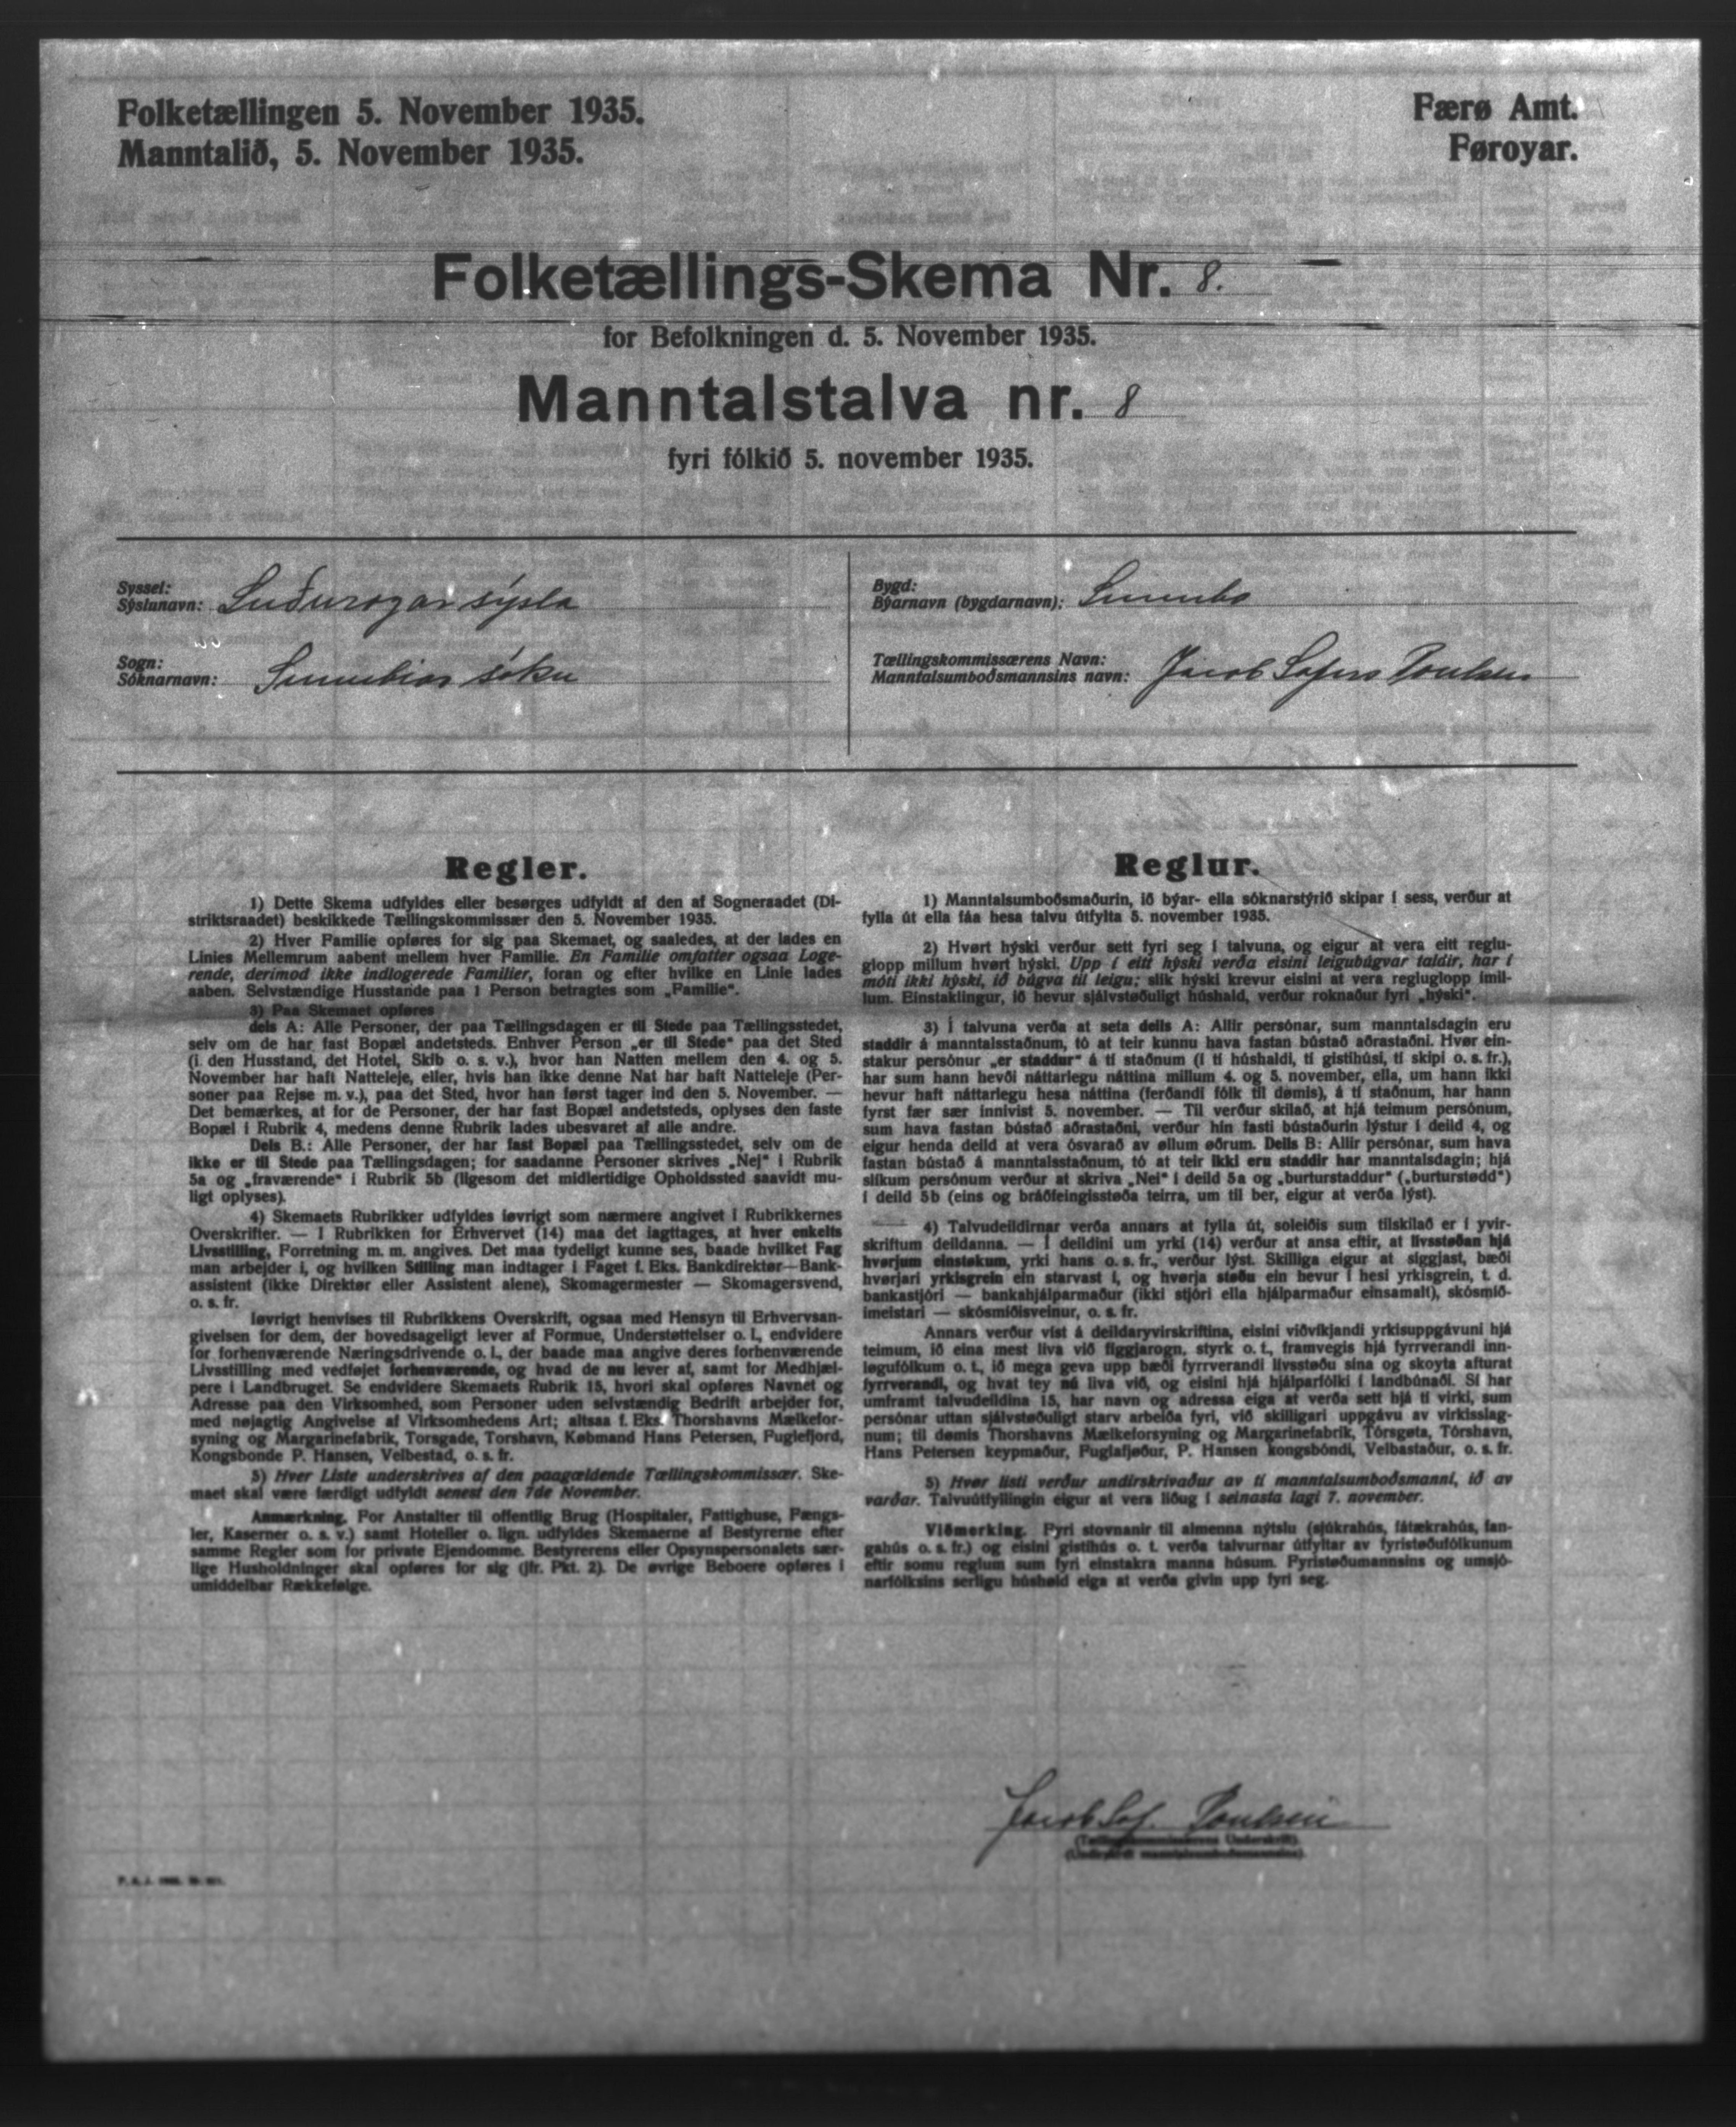 Folketællingen 5. November 1935.
Manntalið, 5. November 1935.
Færø Amt.
Føroyar.
Folketællings-Skema Nr. 8.
for Befolkningen d. 5. November 1935.
Manntalstalva nr. 8
fyri fólkið 5. november 1935.
Syssel:
Sýslunavn: Suðuroyar sýsla
Sogn:
Sóknarnavn: Sumbiar sókn
Bygd:
Býarnavn (bygdarnavn): Sumbo
Tællingskommissærens Navn:
Manntalsumboðsmannsins navn: Jacob Poulsen
Regler.
1) Dette Skema udfyldes eller besørges udfyldt af den af Sogneraadet (Di-
striktsraadet) beskikkede Tællingskommissær den 5. November 1935.
2) Hver Familie opføres for sig paa Skemaet, og saaledes, at der lades en
Linies Mellemrum aabent mellem hver Familie. En Familie omfatter ogsaa Loge-
rende, derimod ikke indlogerede Familier, foran og efter hvilke en Linie lades
aaben. Selvstændige Husstande paa 1 Person betragtes som „Familie“.
3) Paa Skemaet opføres
dels A: Alle Personer, der paa Tællingsdagen er til Stede paa Tællingsstedet,
selv om de har fast Bopæl andetsteds. Enhver Person „er til Stede“ paa det Sted
(i den Husstand, det Hotel, Skib o. s. v.), hvor han Natten mellem den 4. og 5.
November har haft Natteleje, eller, hvis han ikke denne Nat har haft Natteleje (Per-
soner paa Rejse m. v.), paa det Sted, hvor han først tager ind den 5. November. —
Det bemærkes, at for de Personer, der har fast Bopæl andetsteds, oplyses den faste
Bopæl i Rubrik 4, medens denne Rubrik lades ubesvaret af alle andre.
Dels B.: Alle Personer, der har fast Bopæl paa Tællingsstedet, selv om de
ikke er til Stede paa Tællingsdagen; for saadanne Personer skrives „Nej“ i Rubrik
5a og „fraværende“ i Rubrik 5b (ligesom det midlertidige Opholdssted saavidt mu-
ligt oplyses).
4) Skemaets Rubrikker udfyldes iøvrigt som nærmere angivet i Rubrikkernes
Overskrifter. — I Rubrikken for Erhvervet (14) maa det iagttages, at hver enkelts
Livsstilling, Forretning m. m. angives. Det maa tydeligt kunne ses, baade hvilket Fag
man arbejder i, og hvilken Stilling man indtager i Faget f. Eks. Bankdirektør—Bank-
assistent (ikke Direktør eller Assistent alene), Skomagermester — Skomagersvend,
o. s. fr.
Iøvrigt henvises til Rubrikkens Overskrift, ogsaa med Hensyn til Erhvervsan-
givelsen for dem, der hovedsageligt lever af Formue, Understøttelser o. l., endvidere
for forhenværende Næringsdrivende o. l., der baade maa angive deres forhenværende
Livsstilling med vedføjet forhenværende, og hvad de nu lever af, samt for Medhjæl-
pere i Landbruget. Se endvidere Skemaets Rubrik 15, hvori skal opføres Navnet og
Adresse paa den Virksomhed, som Personer uden selvstændig Bedrift arbejder for,
med nøjagtig Angivelse af Virksomhedens Art; altsaa f. Eks. Thorshavns Mælkefor-
syning og Margarinefabrik, Torsgade, Torshavn, Købmand Hans Petersen, Fuglefjord,
Kongsbonde P. Hansen, Velbestad, o. s. fr.
5) Hver Liste underskrives af den paagældende Tællingskommissær. Ske-
maet skal være færdigt udfyldt senest den 7de November.
Anmærkning. For Anstalter til offentlig Brug (Hospitaler, Fattighuse, Fængs-
ler, Kaserner o. s. v.) samt Hoteller o. lign. udfyldes Skemaerne af Bestyrerne efter
samme Regler som for private Ejendomme. Bestyrerens eller Opsynspersonalets sær-
lige Husholdninger skal opføres for sig (jfr. Pkt. 2). De øvrige Beboere opføres i
umiddelbar Rækkefølge.
Reglur.
1) Manntalsumboðsmaðurin, ið býar- ella sóknarstýrið skipar í sess, verður at
fylla út ella fáa hesa talvu útfylta 5. november 1935.
2) Hvørt hýski verður sett fyri seg í talvuna, og eigur at vera eitt reglu-
glopp millum hvørt hýski. Upp í eitt hýski verða eisini leigubúgvar taldir, har í
móti ikki hýski, ið búgva til leigu; slík hýski krevur eisini at vera regluglopp imil-
lum. Einstaklingur, ið hevur sjálvstøðuligt húshald, verður roknaður fyri „hýski“.
3) Í talvuna verða at seta deils A: Allir persónar, sum manntalsdagin eru
staddir á manntalsstaðnum, tó at teir kunnu hava fastan bústað aðrastaðni. Hvør ein-
stakur persónur „er staddur“ á tí staðnum (í tí húshaldi, tí gistihúsi, tí skipi o. s. fr.),
har sum hann hevði náttarlegu náttina millum 4. og 5. november, ella, um hann ikki
hevur haft náttarlegu hesa náttina (ferðandi fólk til dømis), á tí staðnum, har hann
fyrst fær sær innivist 5. november. — Til verður skilað, at hjá teimum persónum,
sum hava fastan bústað aðrastaðni, verður hin fasti bústaðurin lýstur í deild 4, og
eigur henda deild at vera ósvarað av øllum øðrum. Deils B: Allir persónar, sum hava
fastan bústað á manntalsstaðnum, tó at teir ikki eru staddir har manntalsdagin; hjá
slíkum persónum verður at skriva „Nei“ í deild 5a og „burturstaddur“ („burturstødd“)
í deild 5b (eins og bráðfeingisstøða teirra, um til ber, eigur at verða lýst).
4) Talvudeildirnar verða annars at fylla út, soleiðis sum tilskilað er í yvir-
skriftum deildanna. — Í deildini um yrki (14) verður at ansa eftir, at livsstøðan hjá
hvørjum einstøkum, yrki hans o. s. fr., verður lýst. Skilliga eigur at siggjast, bæði
hvørjari yrkisgrein ein starvast í, og hvørja støðu ein hevur í hesi yrkisgrein, t. d.
bankastjóri — bankahjálparmaður (ikki stjóri ella hjálparmaður einsamalt), skósmið-
imeistari — skósmiðisveinur, o. s. fr.
Annars verður víst á deildaryvirskriftina, eisini viðvíkjandi yrkisuppgávuni hjá
teimum, ið eina mest liva við figgjarogn, styrk o. t., framvegis hjá fyrrverandi inn-
løgufólkum o. t., ið mega geva upp bæði fyrrverandi livsstøðu sína og skoyta afturat
fyrrverandi, og hvat tey nú liva við, og eisini hjá hjálparfólki í landbúnaði. Sí har
umframt talvudeildina 15, har navn og adressa eiga at verða sett hjá tí virki, sum
persónar uttan sjálvstøðuligt starv arbeiða fyri, við skilligari uppgávu av virkisslag-
num; til dømis Thorshavns Mælkeforsyning og Margarinefabrik, Tórsgøta, Tórshavn,
Hans Petersen keypmaður, Fuglafjøður, P. Hansen kongsbóndi, Velbastaður, o. s. fr.
5) Hvør listi verður undirskrivaður av tí manntalsumboðsmanni, ið av
varðar. Talvuútfyllingin eigur at vera liðug í seinasta lagi 7. november.
Viðmerking. Fyri stovnanir til almenna nýtslu (sjúkrahús, fátækrahús, fan-
gahús o. s. fr.) og eisini gistihús o. t. verða talvurnar útfyltar av fyristøðufólkunum
eftir somu reglum sum fyri einstakra manna húsum. Fyristøðumannsins og umsjó-
narfólksins serligu húshald eiga at verða givin upp fyri seg.
Jacob Sof. Poulsen
(Tællingskommissærens Underskrift).